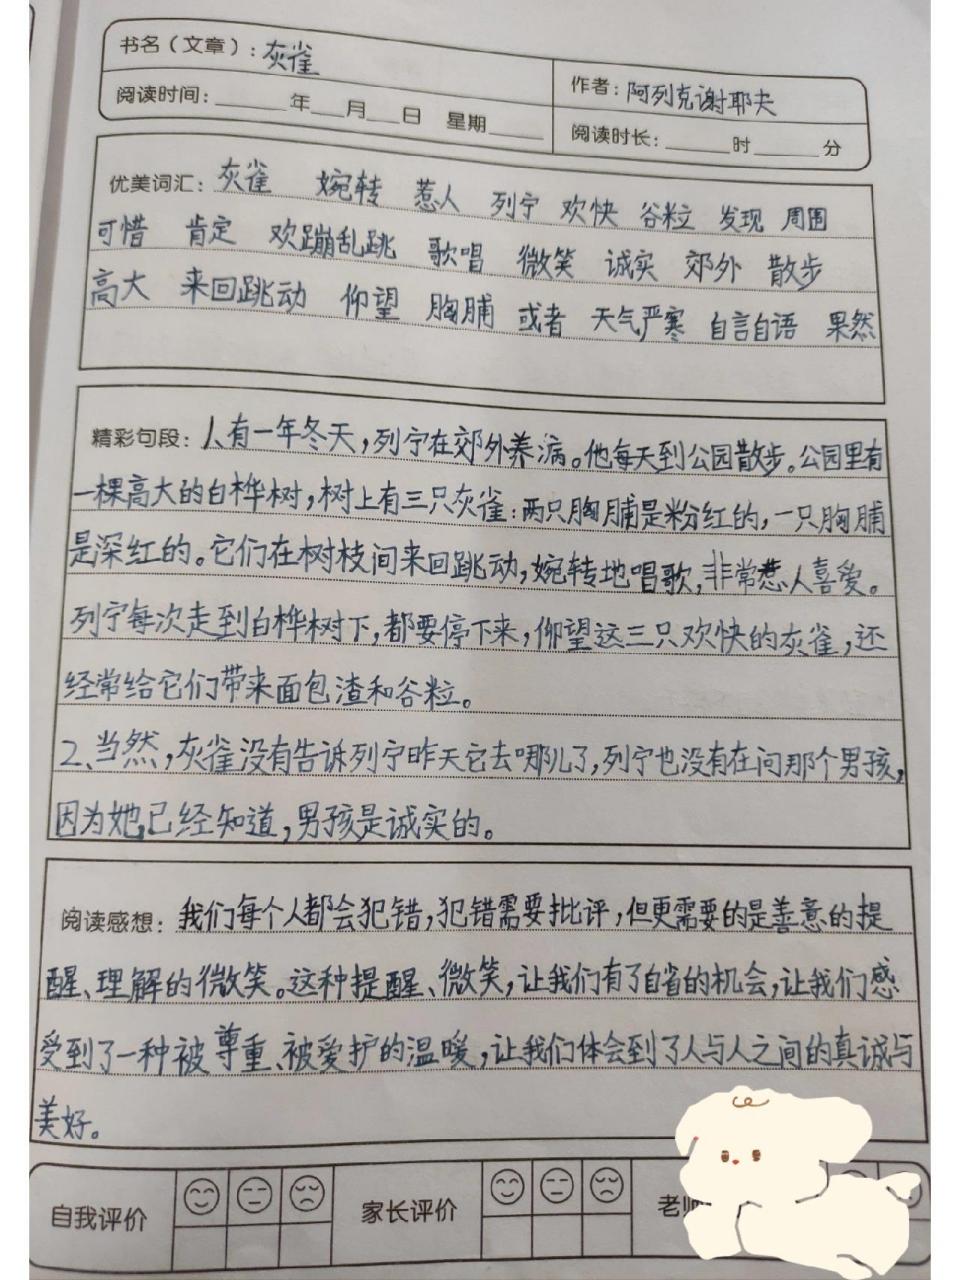 书名（文章）：灰雀
作者：阿列克谢耶夫
阅读时间：______年___月___日 星期______
阅读时长：______时______分
优美词汇：灰雀 婉转 惹人 列宁 欢快 谷粒 发现 周围
可惜 肯定 欢蹦乱跳 歌唱 微笑 诚实 郊外 散步
高大 来回跳动 仰望 胸脯 或者 天气严寒 自言自语 果然
精彩句段：1、有一年冬天，列宁在郊外养病。他每天到公园散步。公园里有
一棵高大的白桦树，树上有三只灰雀：两只胸脯是粉红的，一只胸脯
是深红的。它们在树枝间来回跳动，婉转地唱歌，非常惹人喜爱。
列宁每次走到白桦树下，都要停下来，仰望这三只欢快的灰雀，还
经常给它们带来面包渣和谷粒。
2、当然，灰雀没有告诉列宁昨天它去哪儿了，列宁也没有在问那个男孩，
因为她已经知道，男孩是诚实的。
阅读感想：我们每个人都会犯错，犯错需要批评，但更需要的是善意的提
醒、理解的微笑。这种提醒、微笑，让我们有了自省的机会，让我们感
受到了一种被尊重、被爱护的温暖，让我们体会到了人与人之间的真诚与
美好。
自我评价
家长评价
老师